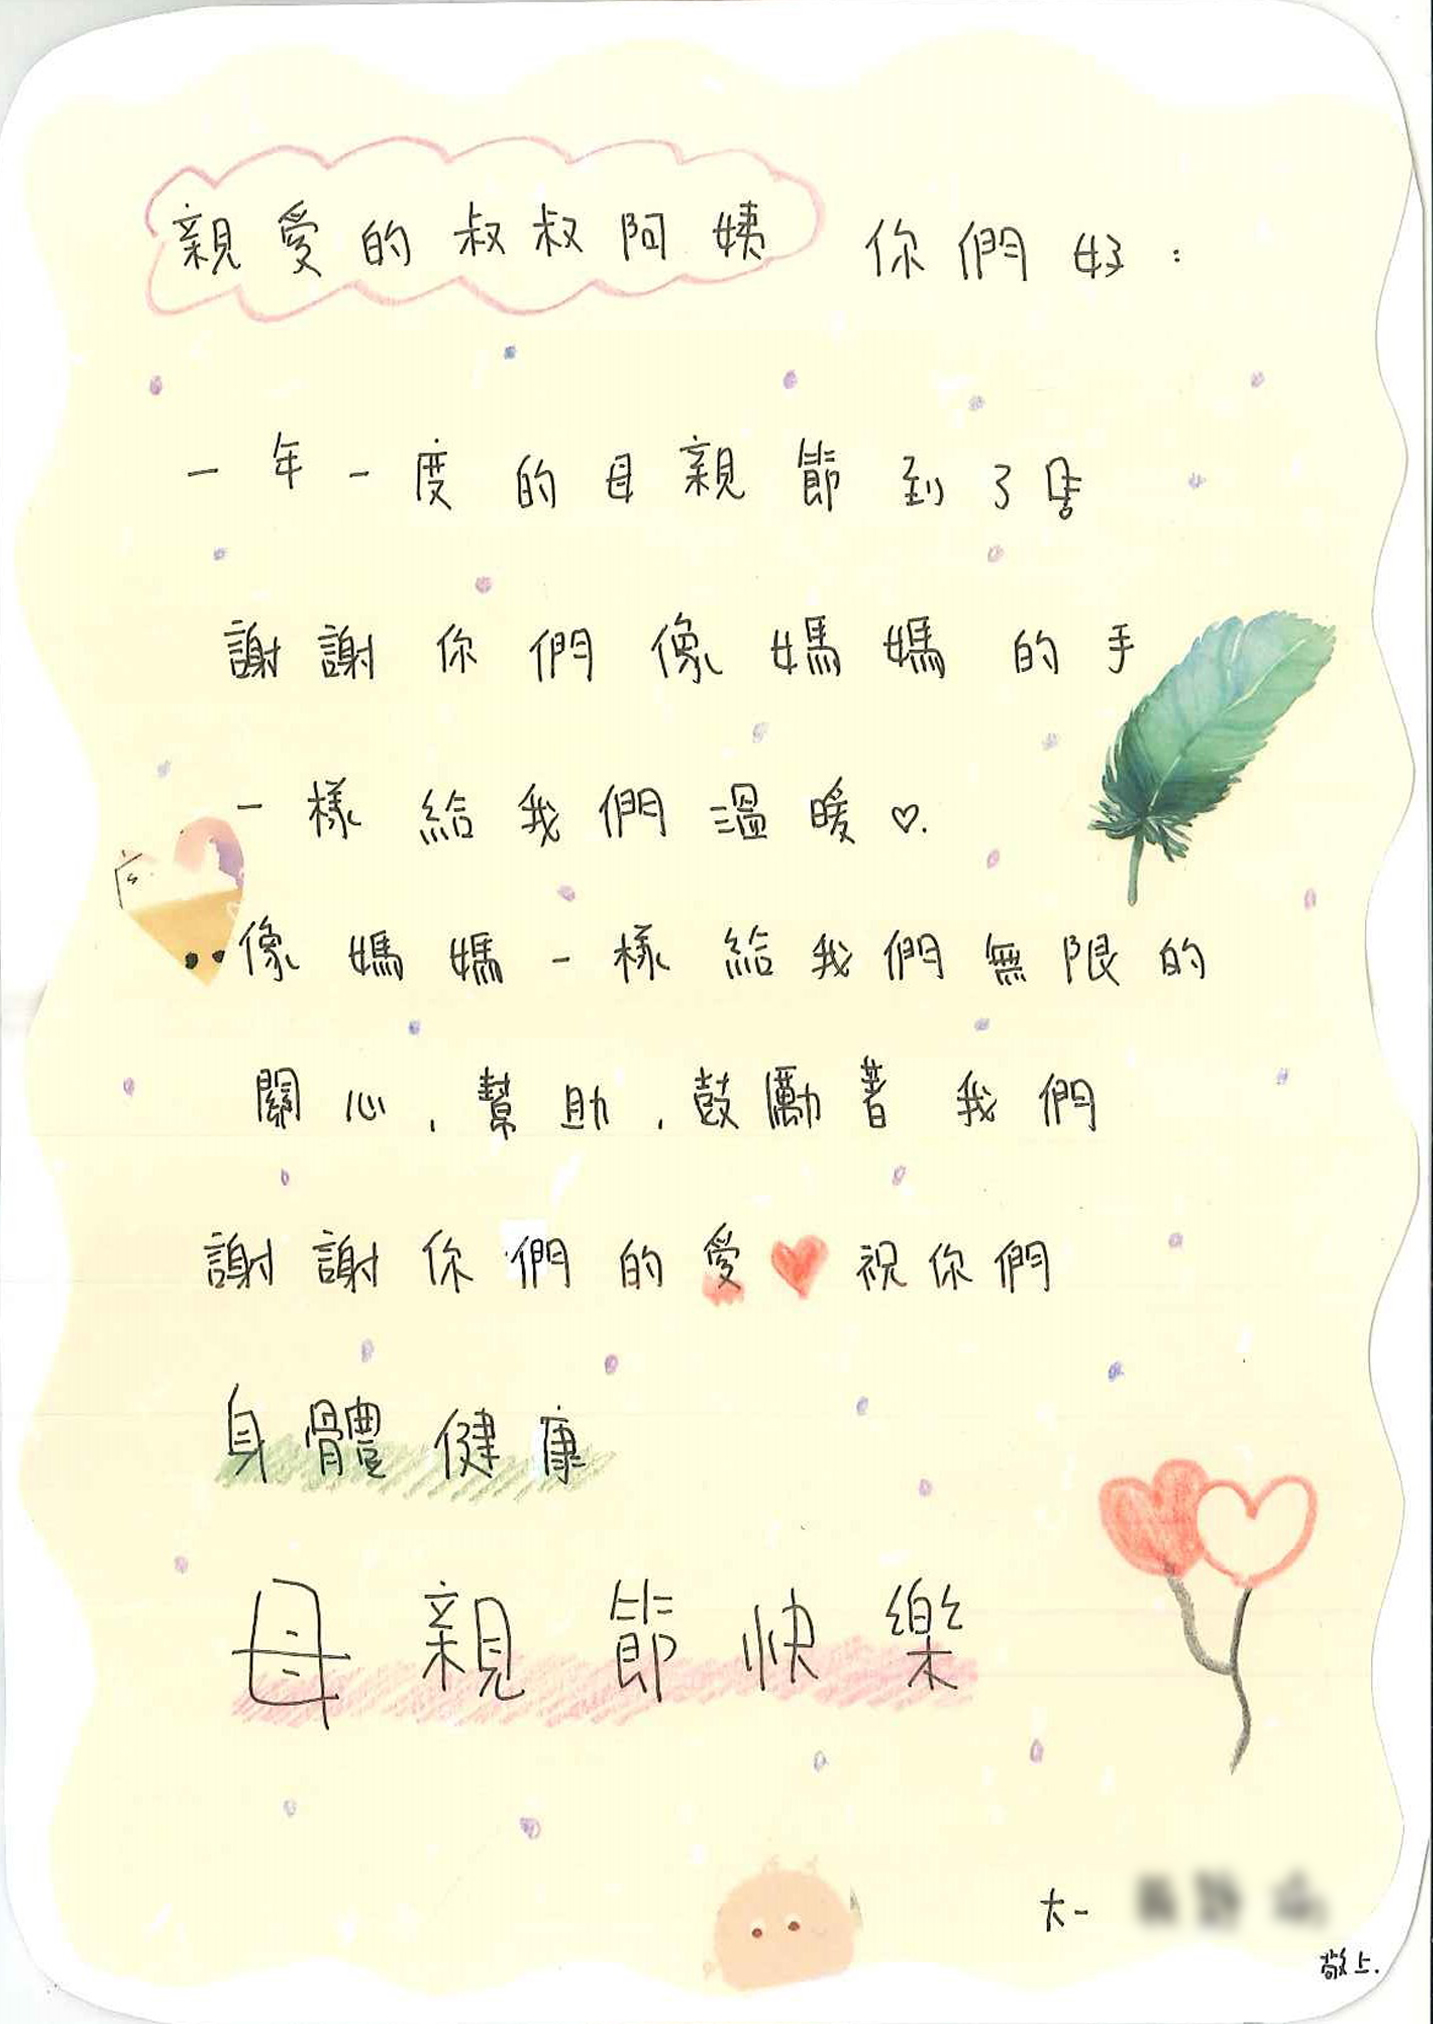 親愛的叔叔阿姨 你們好：
一年一度的母親節到了
謝謝你們像媽媽的手
一樣給我們溫暖♡.
像媽媽一樣給我們無限的
關心、幫助、鼓勵著我們
謝謝你們的愛❤祝你們
身體健康
母親節快樂
大一
敬上.